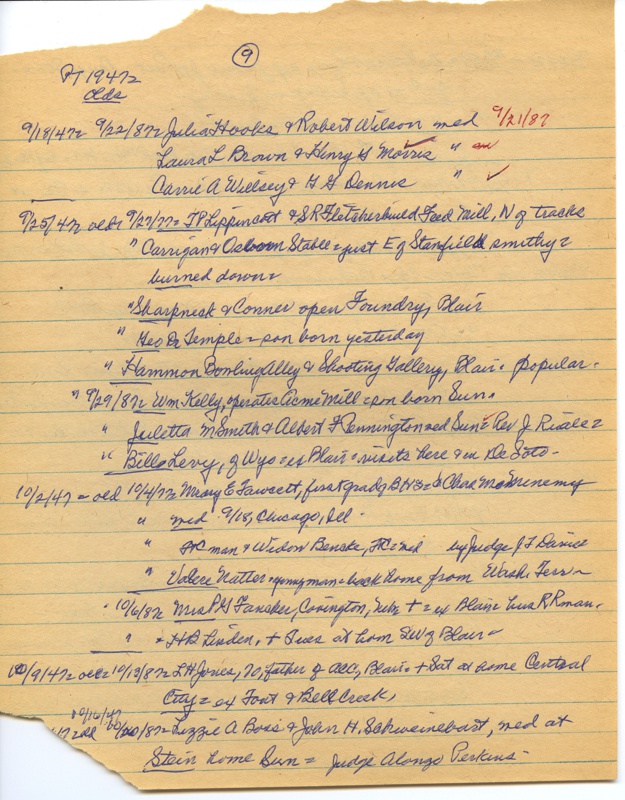 9
PT 1947=
Olds
9/18/47= 9/22/87= Julia Hooks & Robert Wilson med 9/21/87
Laura L Brown & Henry G Morris "
Carrie A Willsey & G G Dennis " ✓
9/25/47= old= 9/27/77= TP Lippincott & SR Fletcher build Feed Mill, N of tracks
" Carrigan & Osborn Stable = just E of Stanfield smithy =
burned down =
" Sharpnack & Conner open Foundry, Blair
" Geo D Temple = son born yesterday
" Hammon Bowling Alley & Shooting Gallery, Blair = popular =
" 9/29/87= Wm Kelly, operates Acme Mill = son born Sun =
" Juletta M Smith & Albert F Pennington med Sun = Rev J. Riale =
" Bill Levy, of Wyo = ex Blair = visits here & in De Soto =
10/2/47 = old 10/4/77= Mary E Fawcett, first grad of BHS = & Chas
" med 9/18, Chicago, Ill =
" man & Widow Benske, = med by Judge J F Davis
" Valere Natter = young man = back home from Wash. Terr =
" 10/6/87= Mrs P G Fancher, Covington, Neb + = ex Blair = hus RR man =
" = HB Linden, + Tues at hom SW of Blair =
10/9/47= old= 10/13/87= LH Jones, 70, father of Blair = + Sat at home Central
City = ex Font & Bell Creek,
10/16/47
old 10/20/87= Lizzie A Boss & John H. Schweinebart, med at
Stein home Sun = Judge Alonzo Perkins =